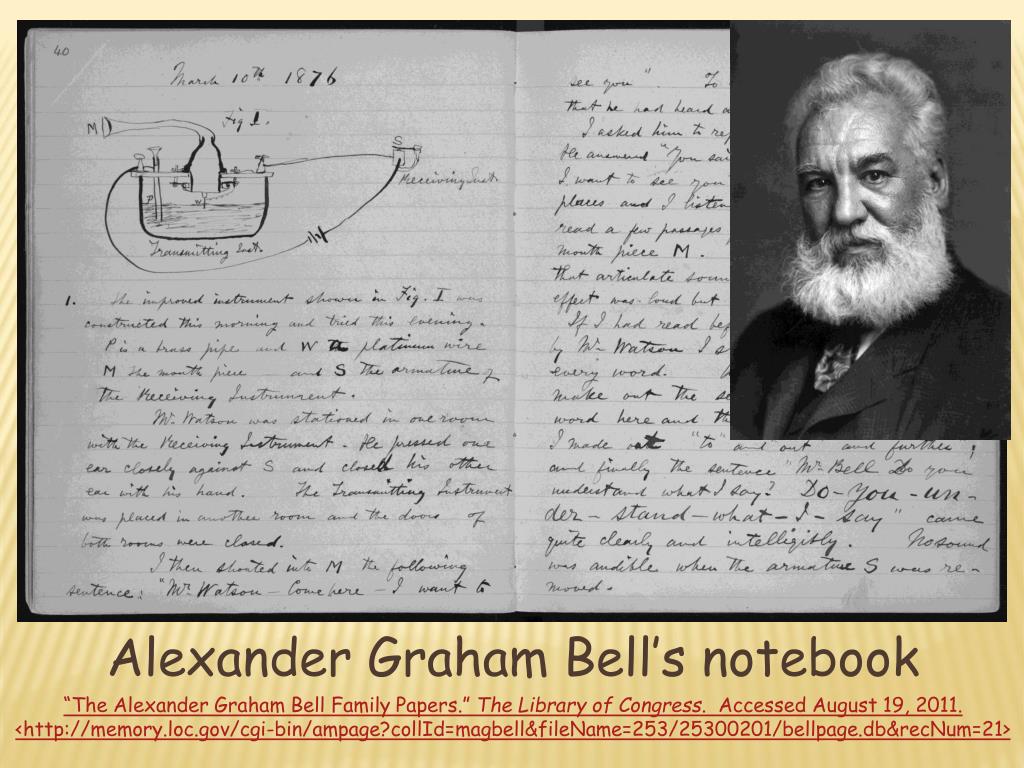 40
March 10th 1876
Fig 1.
M
S
Receiving Inst.
P
W
Transmitting Inst.
1. The improved instrument shown in Fig. I was
constructed this morning and tried this evening.
P is a brass pipe and W a platinum wire
M the mouth piece and S the armature of
the Receiving Instrument.
Mr. Watson was stationed in one room
with the Receiving Instrument. He pressed one
ear closely against S and closed his other
ear with his hand. The Transmitting Instrument
was placed in another room and the doors of
both rooms were closed.
I then shouted into M the following
sentence: "Mr. Watson - Come here - I want to
see you". To
that he had heard a
I asked him to rep
He answered "You sai
I want to see you
places and I listen
read a few passages
mouth piece M.
that articulate soun
effect was loud but
If I had read bef
by Mr. Watson I s
every word.
make out the se
word here and th
I made out "to" and "out" and further;
and finally the sentence "Mr. Bell Do you
understand what I say? Do-you-un-
der-stand-what-I-say" came
quite clearly and intelligibly. No sound
was audible when the armature S was re-
moved.
Alexander Graham Bell’s notebook
“The Alexander Graham Bell Family Papers.” The Library of Congress. Accessed August 19, 2011.
<http://memory.loc.gov/cgi-bin/ampage?collId=magbell&fileName=253/25300201/bellpage.db&recNum=21>